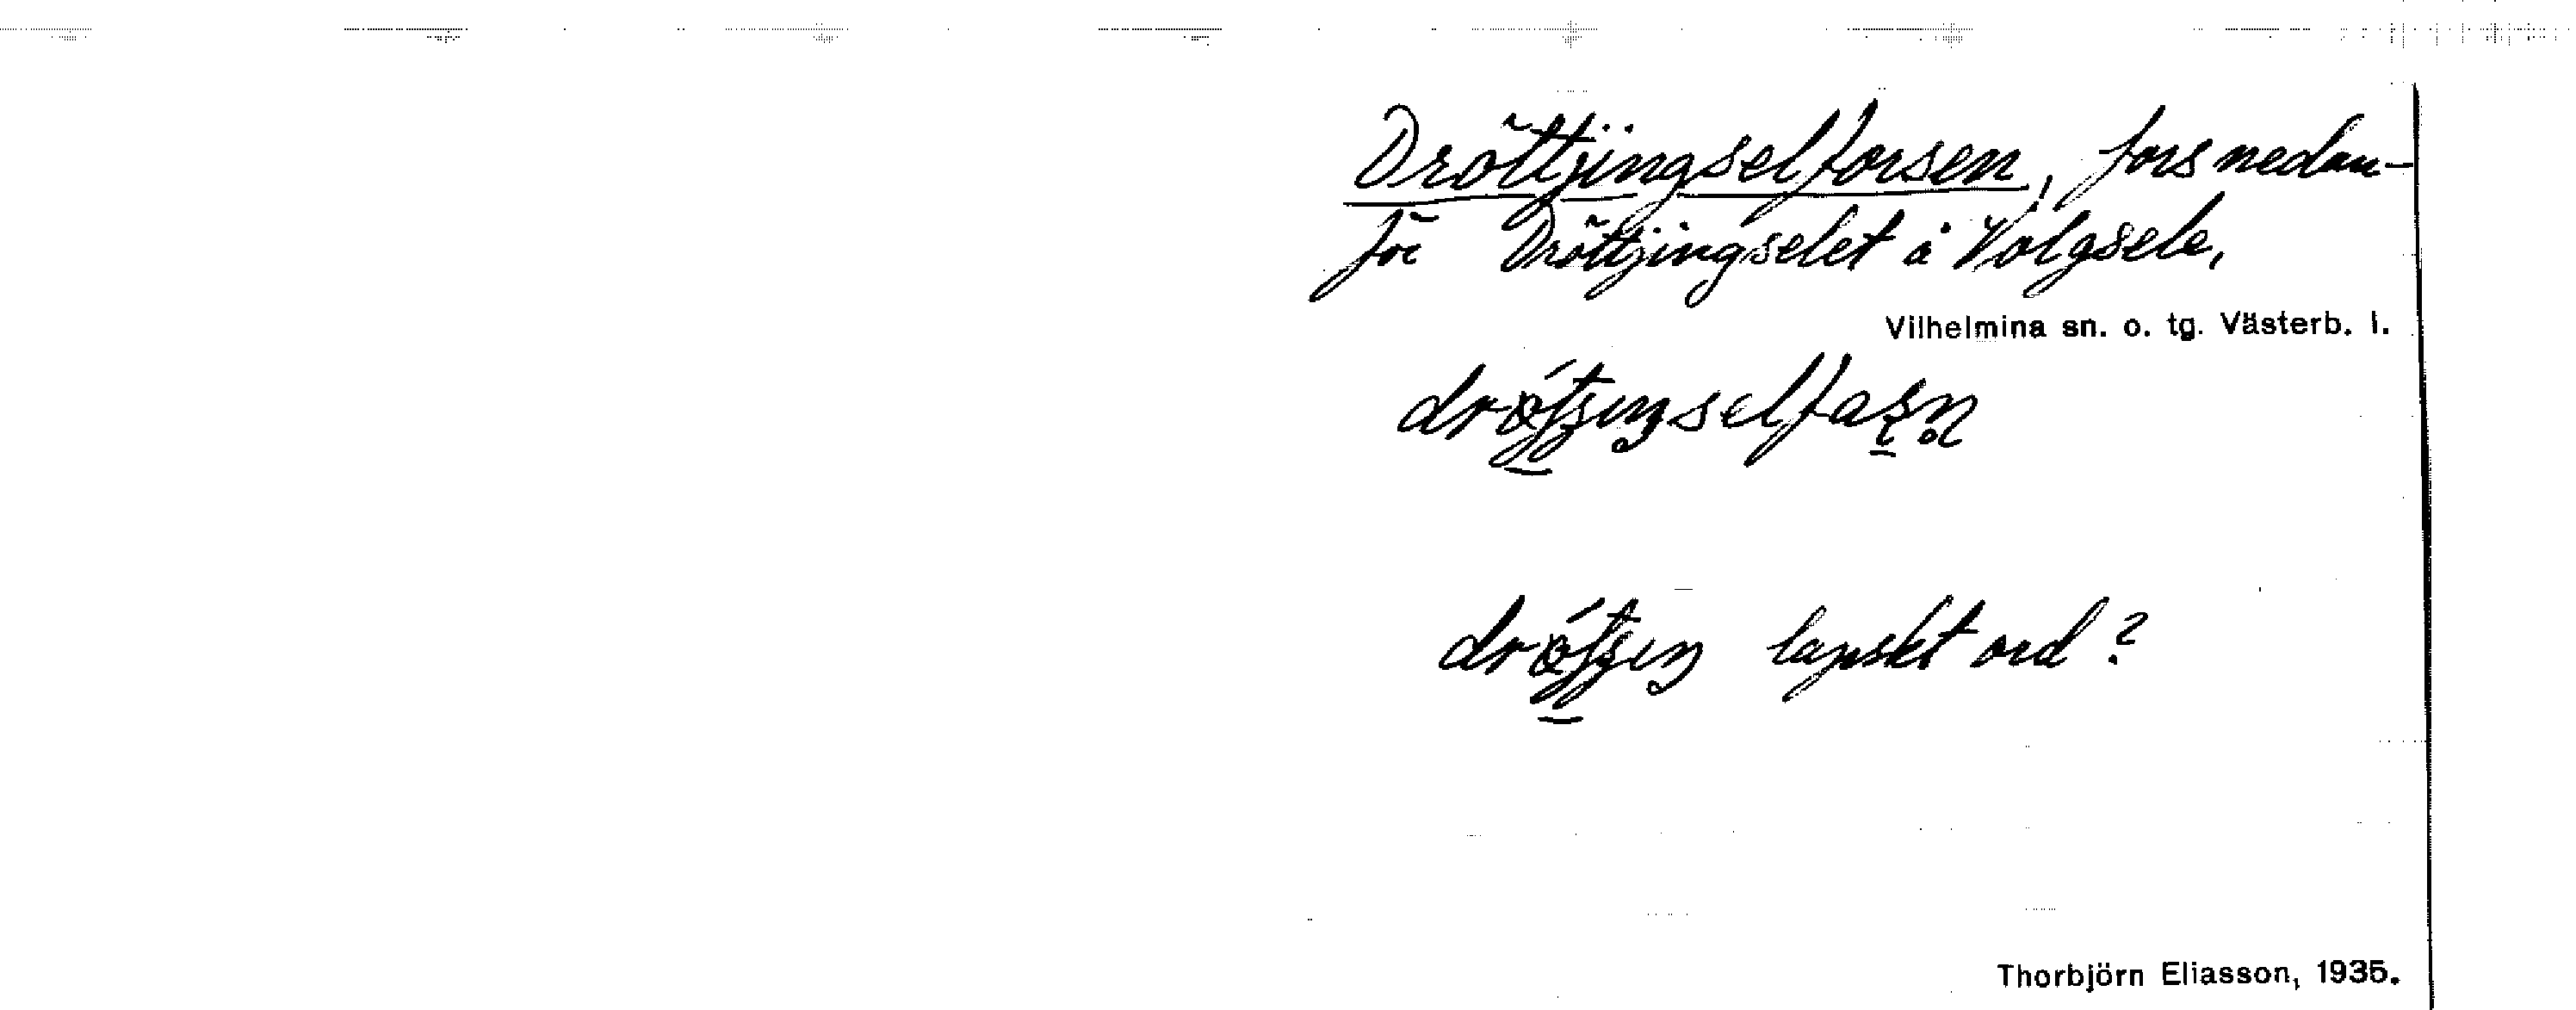 Dröttjingselforsen, fors nedan-
för Dröttjingselet å Volgsele,
Vilhelmina sn. o. tg. Västerb. l.
lapskt ord?
Thorbjörn Eliasson, 1935.